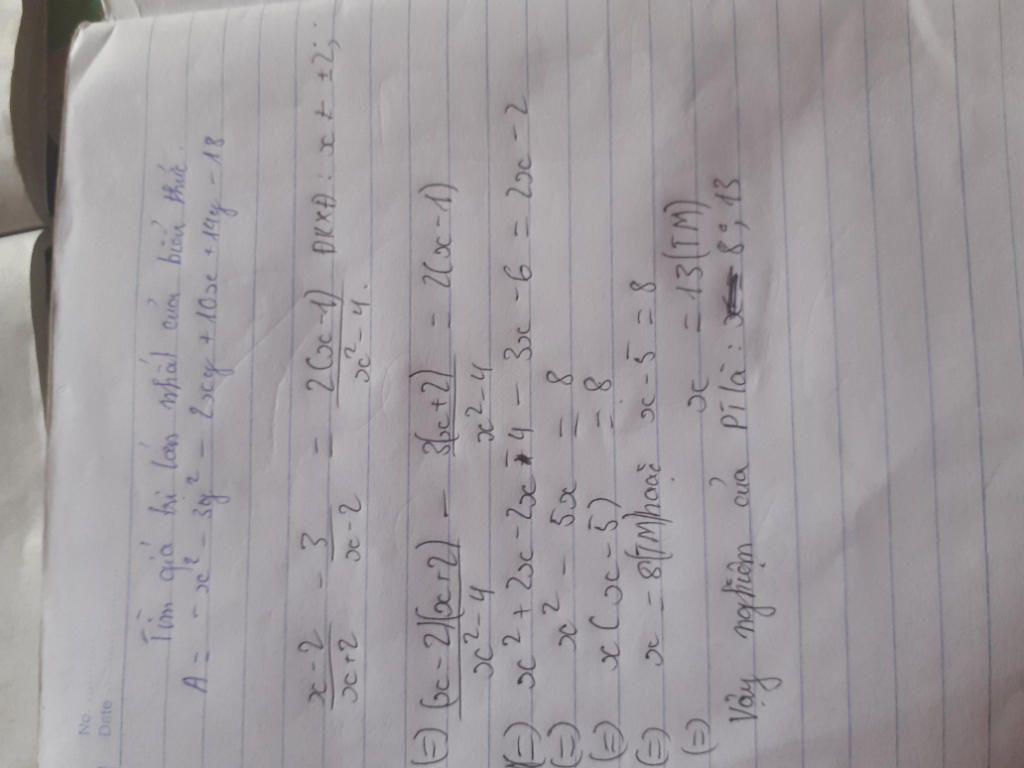 No.
Date
Tìm giá trị lớn nhất của biểu thức.
A = - x² - 3y² - 2xy + 10x + 14y - 18
x-2/x+2 - 3/x-2 = 2(x-1)/x²-4. ĐKXĐ: x ≠ ±2;
(=) (x-2)(x+2)/x²-4 - 3(x+2)/x²-4 = 2(x-1)
(=) x² + 2x - 2x - 4 - 3x - 6 = 2x - 2
(=) x² - 5x = 8
(=) x(x-5) = 8
(=) x = 8(TM) hoặc x-5 = 8
(=) x = 13(TM)
Vậy nghiệm của PT là: 8; 13